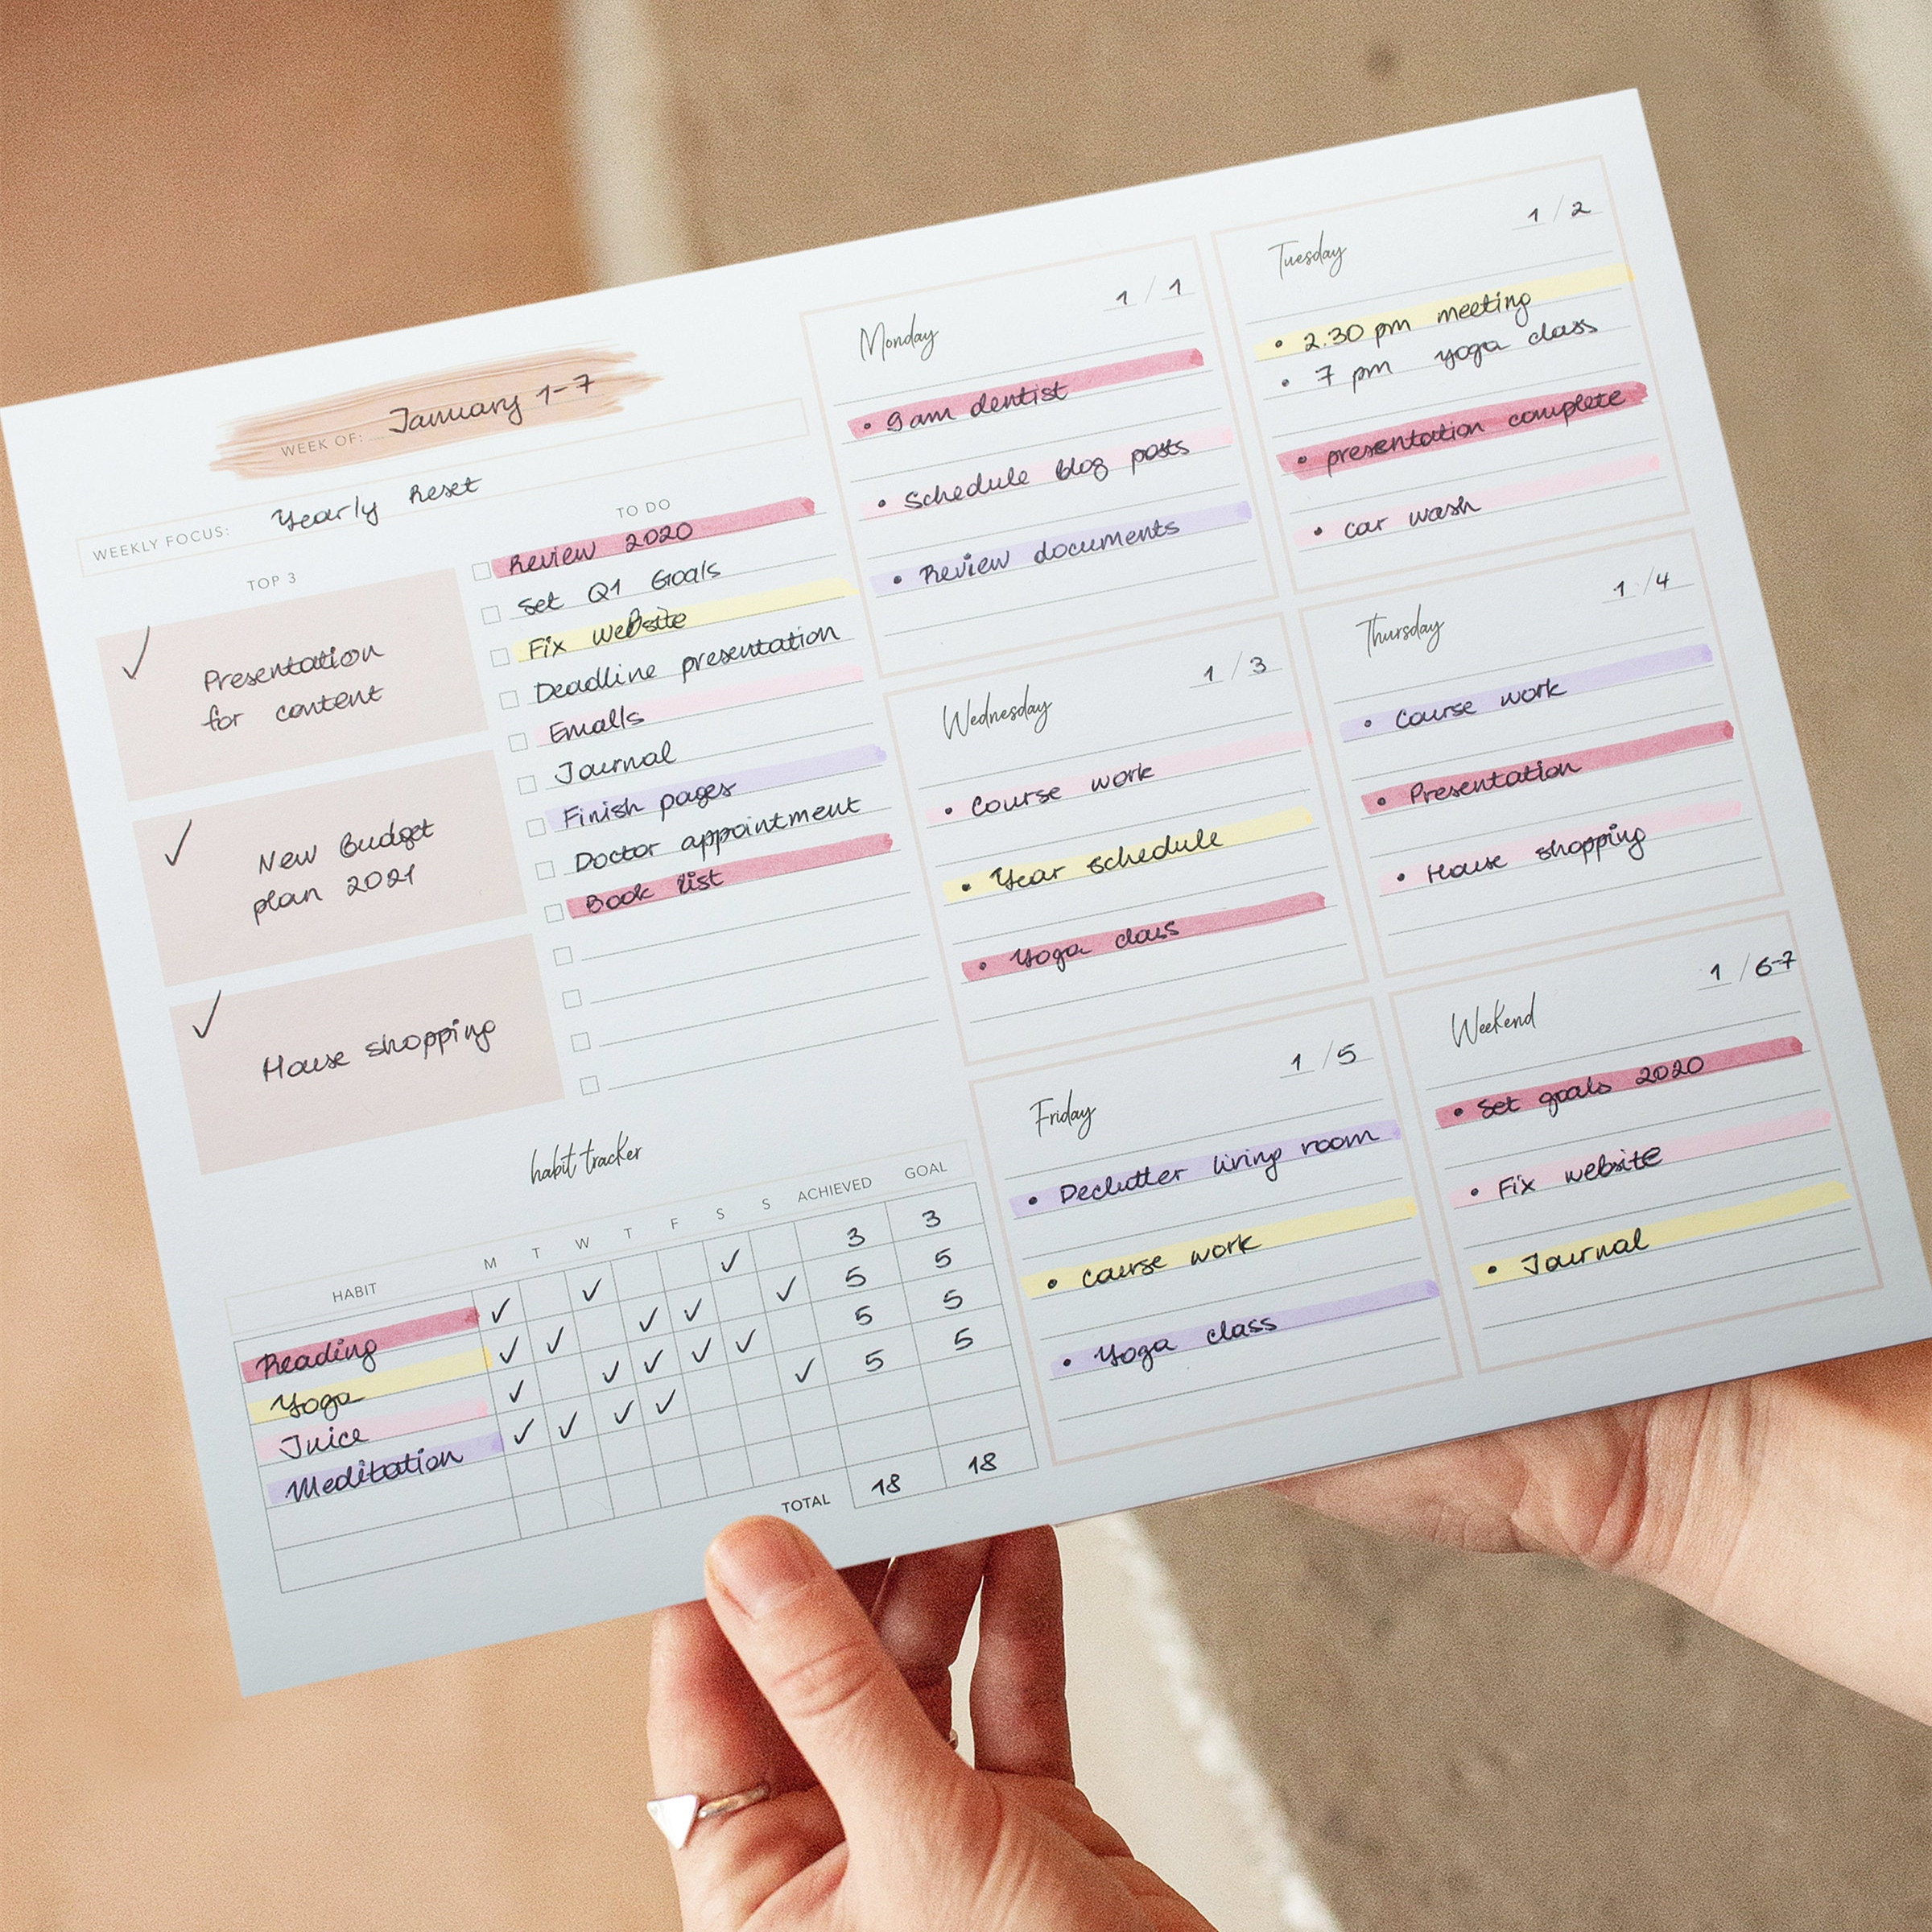 WEEK OF: January 1-7
WEEKLY FOCUS: Yearly Reset
TOP 3
Presentation
for content
New Budget
plan 2021
House shopping
TO DO
Review 2020
Set Q1 Goals
Fix website
Deadline presentation
Emails
Journal
Finish pages
Doctor appointment
Book list
habit tracker
HABIT M T W T F S S ACHIEVED GOAL
Reading ✓ ✓ ✓ 3 3
Yoga ✓ ✓ ✓ ✓ ✓ 5 5
Juice ✓ ✓ ✓ ✓ ✓ 5 5
Meditation ✓ ✓ ✓ ✓ ✓ 5 5
TOTAL 18 18
Monday 1 / 1
• 9am dentist
• Schedule blog posts
• Review documents
Tuesday 1 / 2
• 2.30 pm meeting
• 7 pm yoga class
• presentation complete
• car wash
Wednesday 1 / 3
• Course work
• Year schedule
• Yoga class
Thursday 1 / 4
• Course work
• Presentation
• House shopping
Friday 1 / 5
• Declutter living room
• Course work
• Yoga class
Weekend 1 / 6-7
• Set goals 2020
• Fix website
• Journal